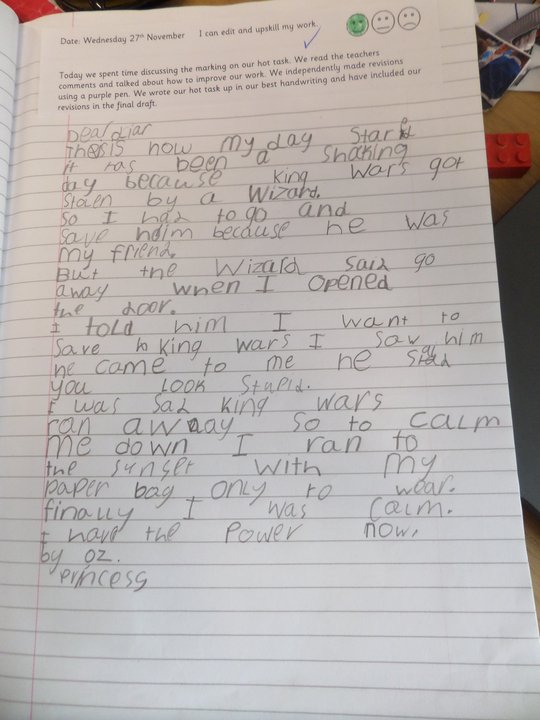 Date: Wednesday 27th November I can edit and upskill my work.
Today we spent time discussing the marking on our hot task. We read the teachers
comments and talked about how to improve our work. We independently made revisions
using a purple pen. We wrote our hot task up in our best handwriting and have included our
revisions in the final draft.
Dear diar
This is how my day start
it has been a shaking
day because king wars got
stolen by a Wizard.
So I had to go and
save him because he was
my friend.
But the Wizard said go
away when I opened
the door.
I told him I want to
save king wars I saw him
he came to me he said
you look stupid.
I was sad king wars
ran away so to calm
me down I ran to
the sunset with my
paper bag only to wear.
finally I was calm.
I have the power now.
by oz.
princess